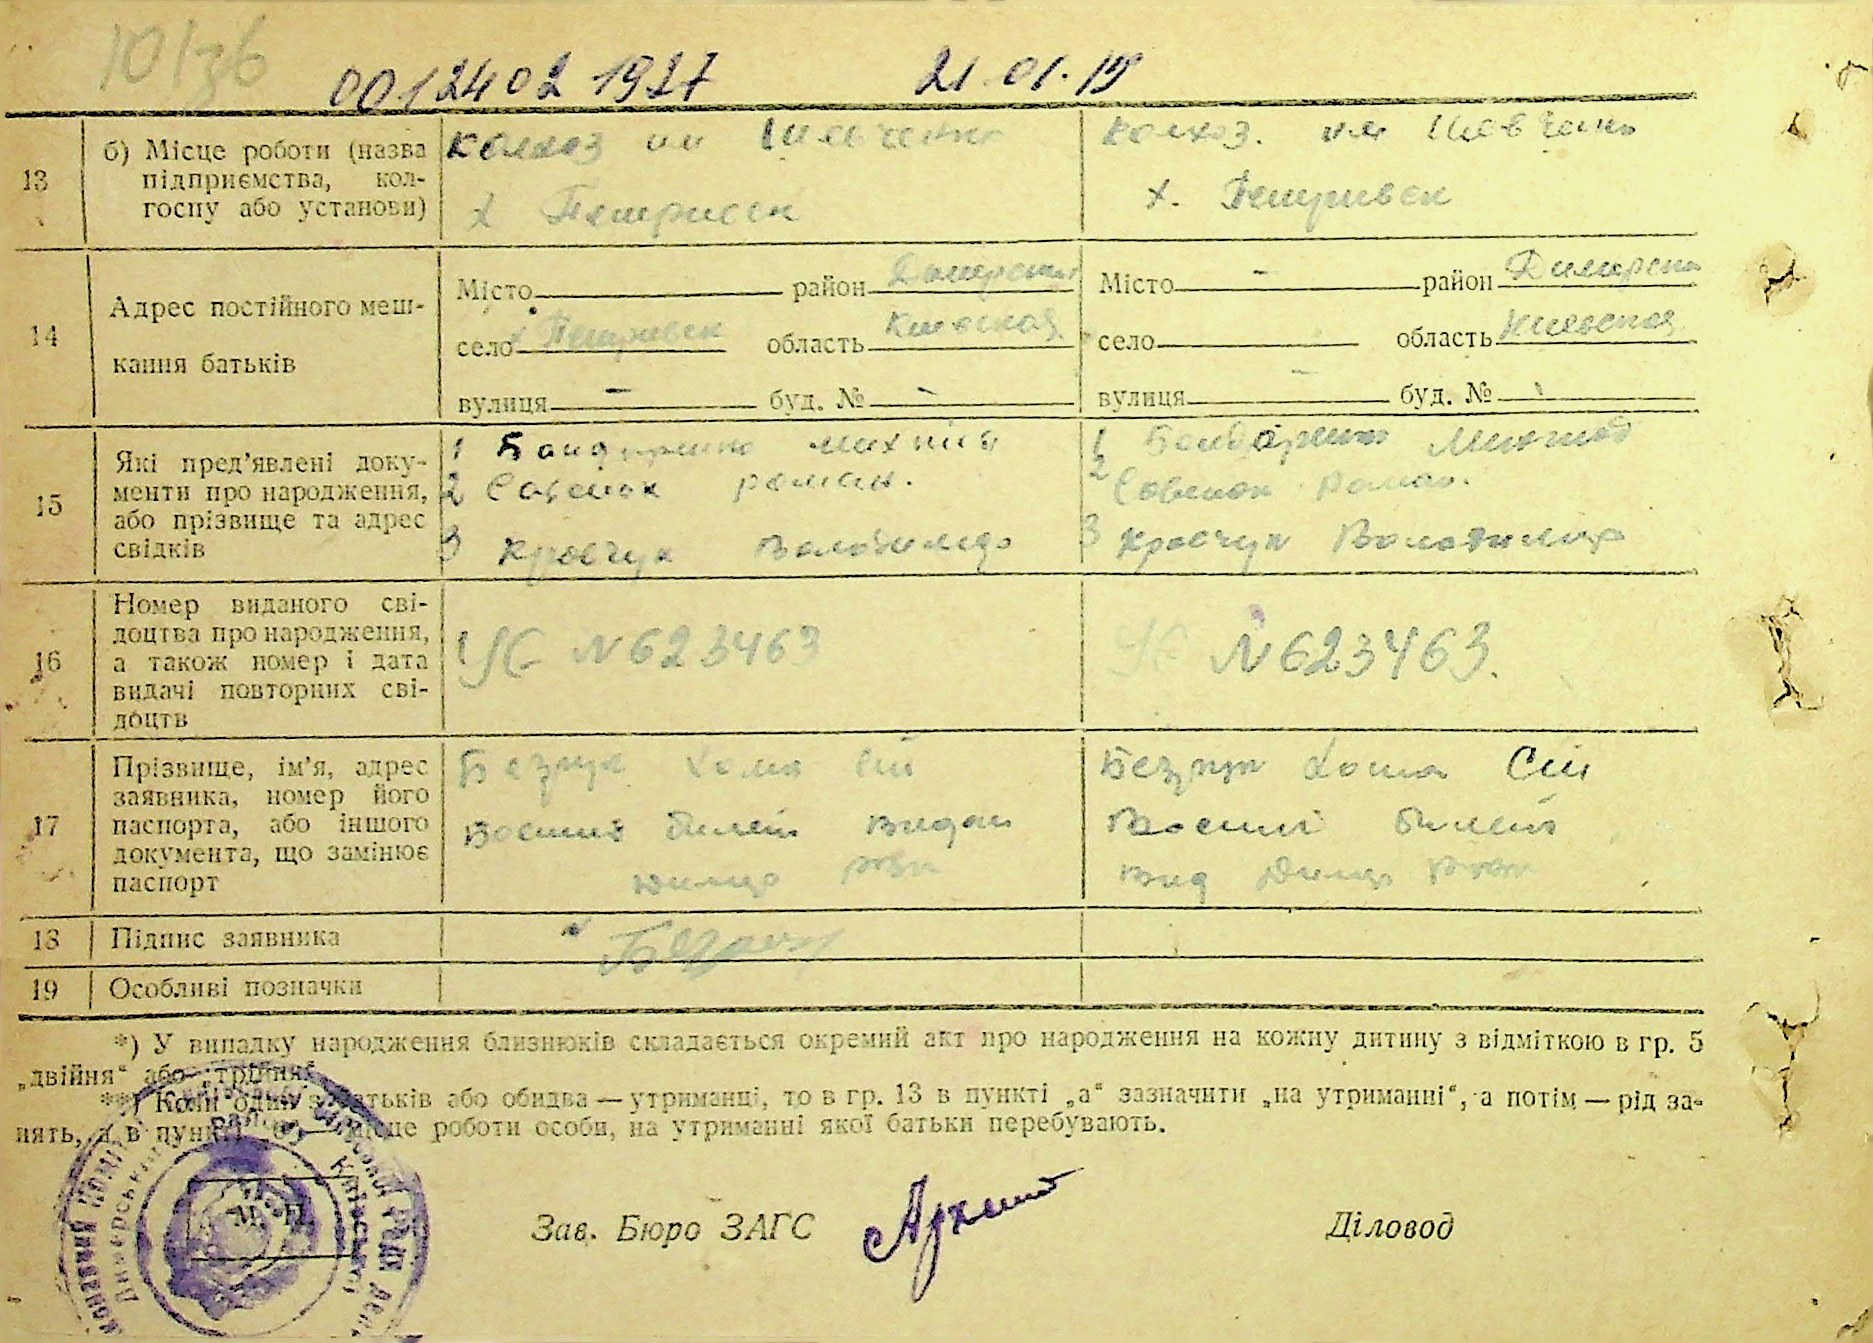 10/зб
0012402 1927 21.01.19
13
б) Місце роботи (назва підприємства, кол-
госпу або установи)
Колхоз им Шевченко
х Петривск
Колхоз. им Шевченко
х. Петривск
14
Адрес постійного меш-
кання батьків
Місто район Дымерский
село х Петривск область Киевская
вулиця – буд. № –
Місто – район Димерски
село область Киевская
вулиця – буд. №
15
Які пред’явлені доку-
менти про народження,
або прізвище та адрес
свідків
1 Бондаренко
2 Савенок роман.
3 Кровчук Володимир
1 Бондаренко
2 Совенок Роман.
3 Кровчук Володимир
16
Номер виданого сві-
доцтва про народження,
а також номер і дата
видачі повторних сві-
доцтв
N 623463
N 623463.
17
Прізвище, ім’я, адрес
заявника, номер його
паспорта, або іншого
документа, що замінює
паспорт
Хома
Воений билет видан
РВК
Хома
Воений билет
вид РВК
18
Підпис заявника
19
Особливі позначки
*) У випадку народження близнюків складається окремий акт про народження на кожну дитину з відміткою в гр. 5
„двійня“ або „трійня“.
**) Коли один з батьків або обидва — утриманці, то в гр. 13 в пункті „а“ зазначити „на утриманні“, а потім — рід за-
нять, а в пункті „б“ — місце роботи особи, на утриманні якої батьки перебувають.
М. П.
Зав. Бюро ЗАГС
Діловод